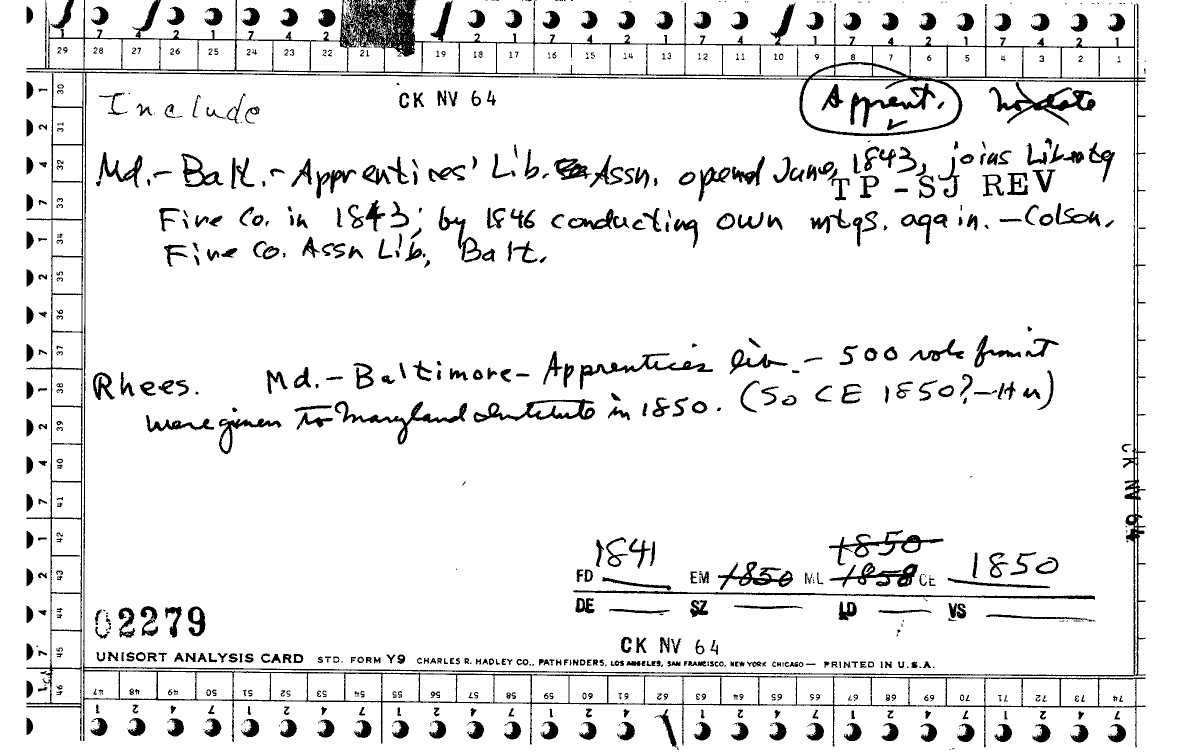 1 7 4 2 1 7 4 2 4 2 1 7 4 2 1 7 4 2 1 7 4 2 1 7 4 2 1
29 28 27 26 25 24 23 22 21 20 19 18 17 16 15 14 13 12 11 10 9 8 7 6 5 4 3 2 1
Include CK NV 64 Apprent. no date
Md.-Balt.-Apprentices' Lib. Assn. opend June, 1843, joins Liberty
TP-SJ REV
Fire Co. in 1843; by 1846 conducting own mtgs. again. —Colson.
Fire Co. Assn Lib., Balt.
Rhees. Md.-Baltimore-Apprentices lib. - 500 vols from it
were given to Maryland Institute in 1850. (So CE 1850?-HM)
CK NV 64
1850
FD 1841 EM 1850 ML 1858 CE 1850
DE SZ LD VS
02279
CK NV 64
UNISORT ANALYSIS CARD STD. FORM Y9 CHARLES R. HADLEY CO., PATHFINDERS, LOS ANGELES, SAN FRANCISCO, NEW YORK CHICAGO — PRINTED IN U.S.A.
30 31 32 33 34 35 36 37 38 39 40 41 42 43 44 45 46
47 48 49 50 51 52 53 54 55 56 57 58 59 60 61 62 63 64 65 66 67 68 69 70 71 72 73 74